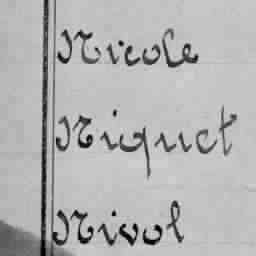 Nicole
Niquet
Nivol